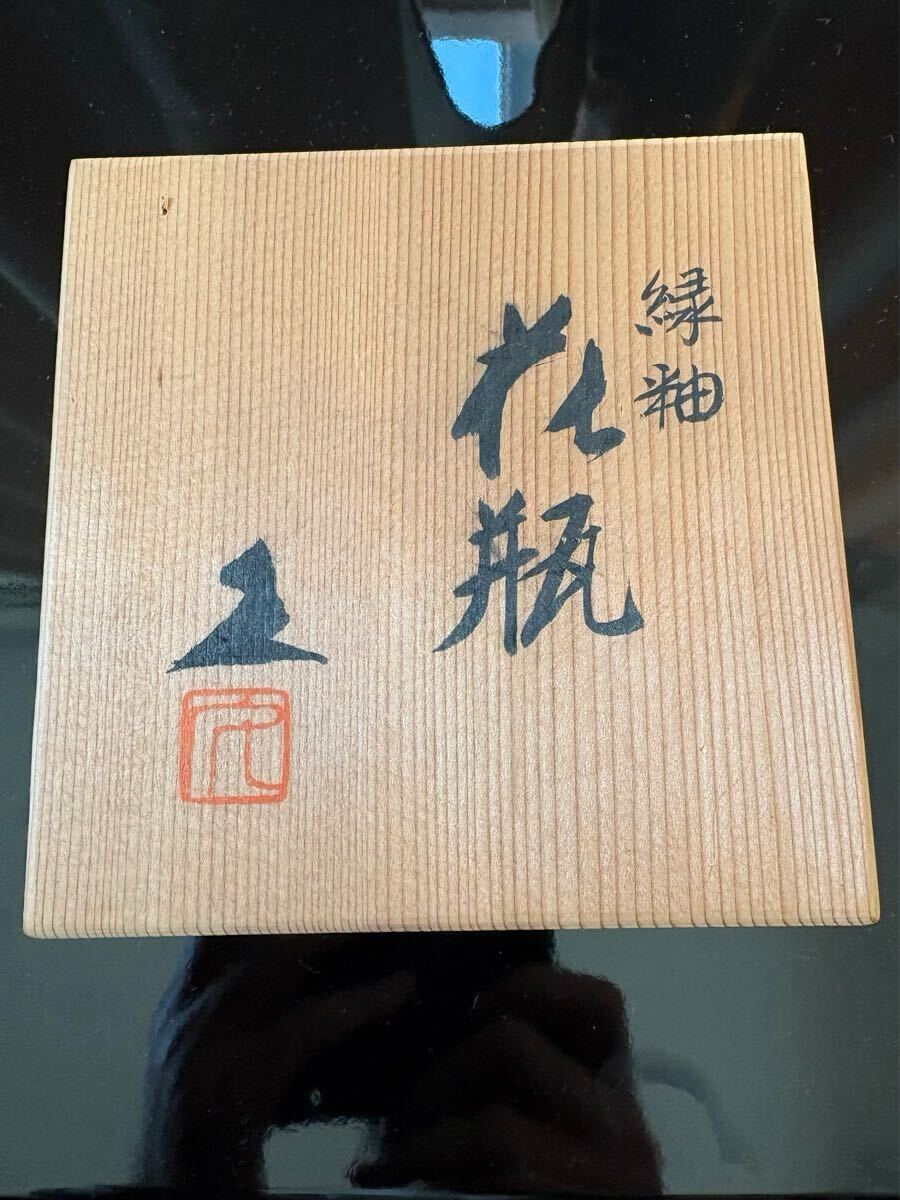 緑釉
花瓶